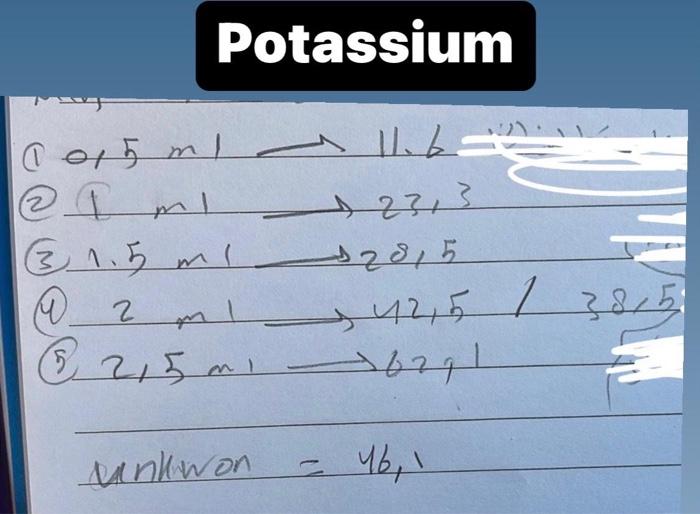 Potassium
① 0,5 ml → 11.6
② 1 ml → 23,3
③ 1.5 ml → 28,5
④ 2 ml → 42,5 / 38,5
⑤ 2,5 ml →
unkwon = 46,1